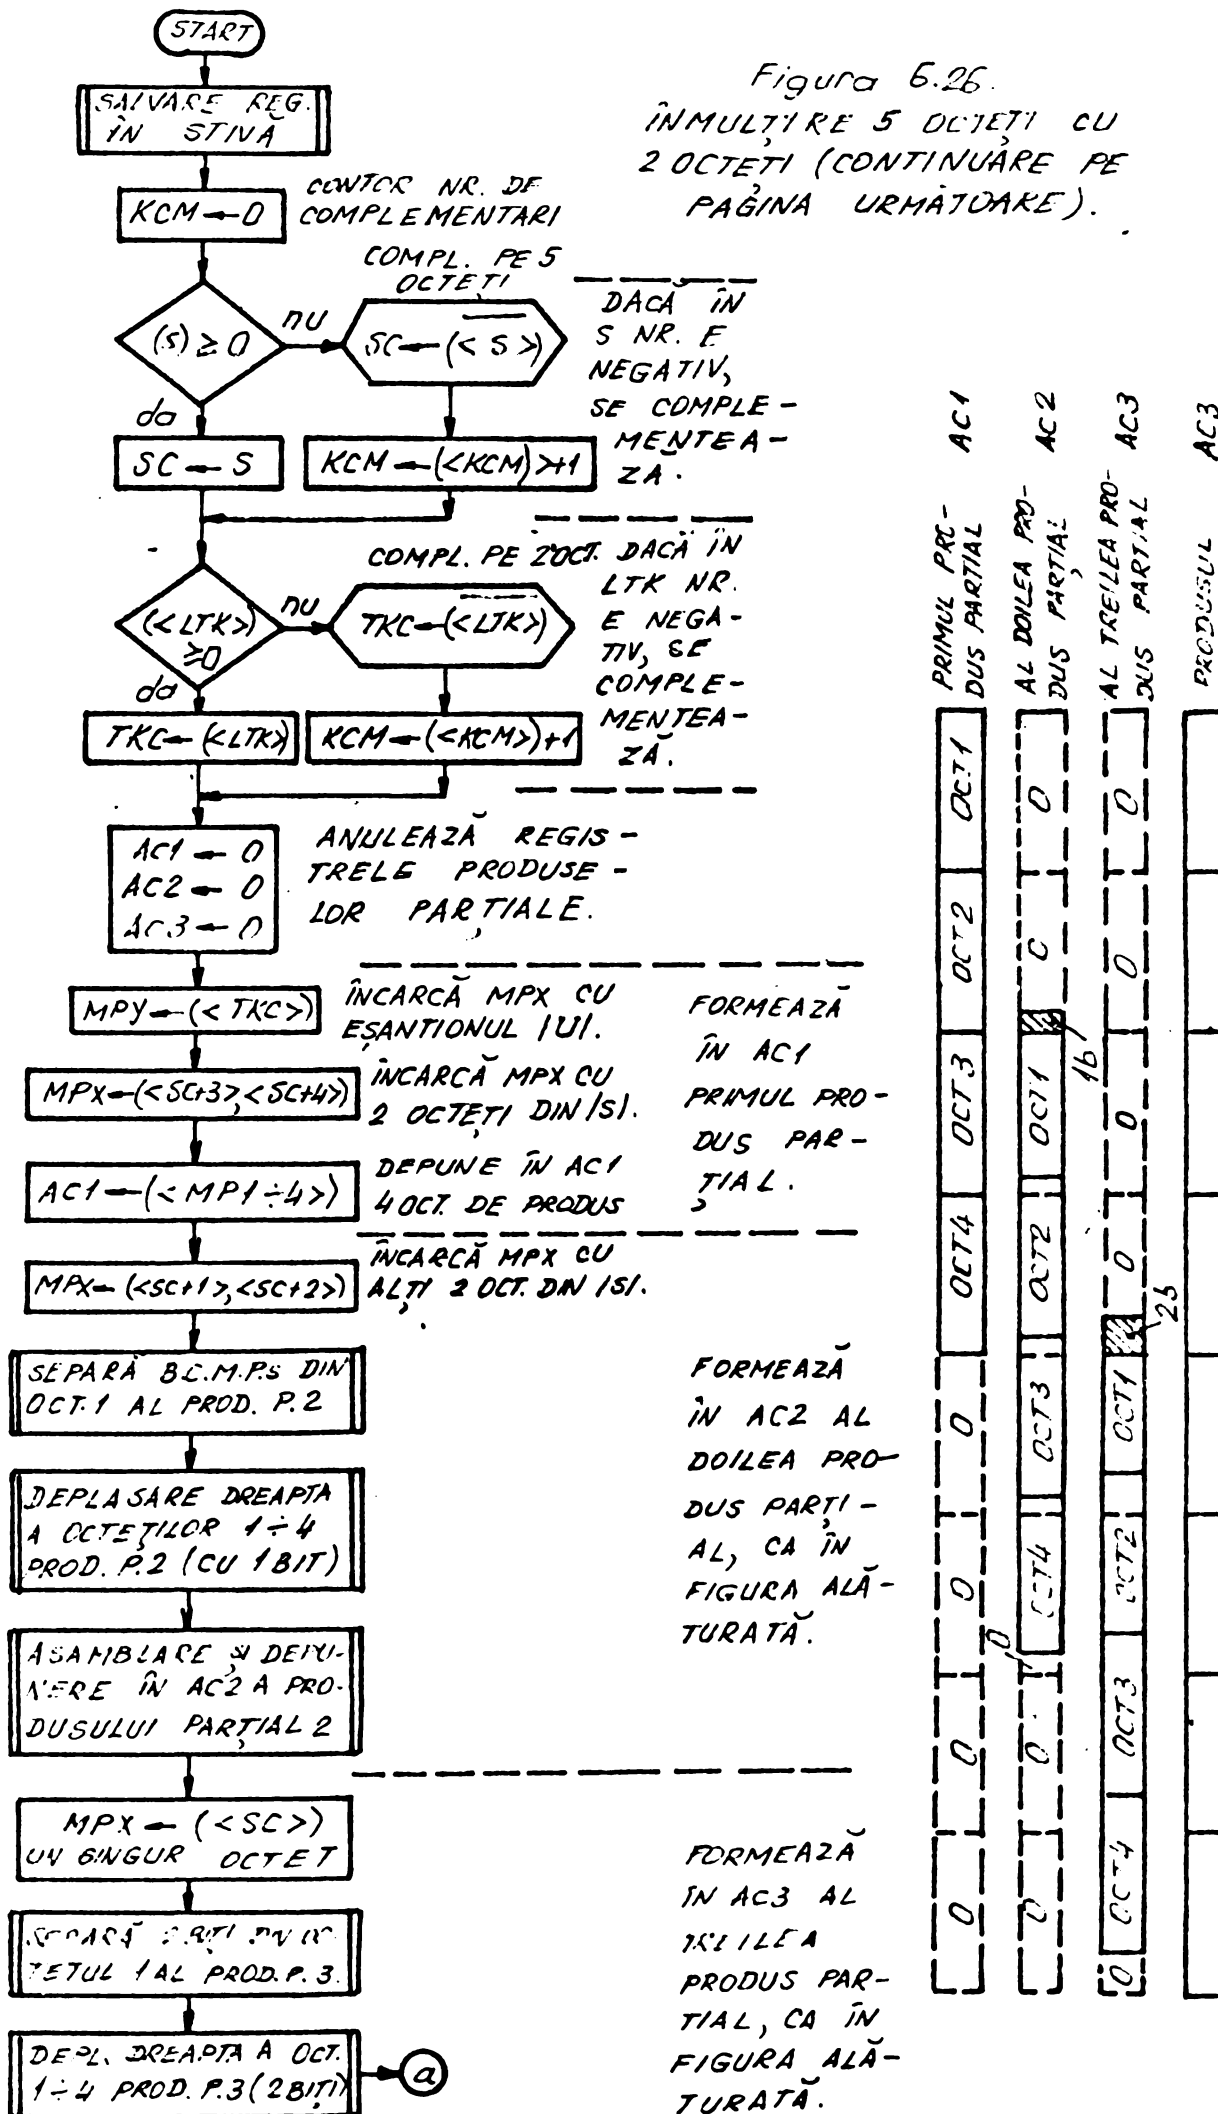 START
Figura 6.26.
ÎNMULȚIRE 5 OCTEȚI CU
2 OCTEȚI (CONTINUARE PE
PAGINA URMĂTOARE).
SALVARE REG.
ÎN STIVĂ
KCM ← 0
CONTOR NR. DE
COMPLEMENTARI
(S) ≥ 0
nu
da
COMPL. PE 5
OCTEȚI
SC ← (<S>)
DACĂ ÎN
S NR. E
NEGATIV,
SE COMPLE-
MENTEA-
ZĂ.
SC ← S
KCM ← (<KCM)>+1
(<LTK>)
≥0
nu
da
COMPL. PE 2OCT.
TKC ← (<LTK>)
DACĂ ÎN
LTK NR.
E NEGA-
TIV, SE
COMPLE-
MENTEA-
ZĂ.
TKC ← (<LTK>)
KCM ← (<KCM>)+1
AC1 ← 0
AC2 ← 0
AC3 ← 0
ANULEAZĂ REGIS-
TRELE PRODUSE-
LOR PARȚIALE.
MPY ← (<TKC>)
ÎNCARCĂ MPX CU
EȘANTIONUL |U|.
MPX ← (<SC+3>,<SC+4>)
ÎNCARCĂ MPX CU
2 OCTEȚI DIN |S|.
AC1 ← (<MP1÷4>)
DEPUNE ÎN AC1
4 OCT. DE PRODUS
FORMEAZĂ
ÎN AC1
PRIMUL PRO-
DUS PAR-
ȚIAL.
MPX ← (<SC+1>,<SC+2>)
ÎNCARCĂ MPX CU
ALȚI 2 OCT. DIN |S|.
SEPARĂ B.C.M.P.S DIN
OCT.1 AL PROD. P.2
DEPLASARE DREAPTA
A OCTEȚILOR 1÷4
PROD. P.2 (CU 1 BIT)
ASAMBLARE ȘI DEPU-
NERE ÎN AC2 A PRO-
DUSULUI PARȚIAL 2
FORMEAZĂ
ÎN AC2 AL
DOILEA PRO-
DUS PARȚI-
AL, CA ÎN
FIGURA ALĂ-
TURATĂ.
MPX ← (<SC>)
UN SINGUR OCTET
SEPARĂ 2 BIȚI DIN OC-
TETUL 1 AL PROD. P.3.
DEPL. DREAPTA A OCT.
1÷4 PROD. P.3 (2BIȚI)
a
FORMEAZĂ
ÎN AC3 AL
TREILEA
PRODUS PAR-
TIAL, CA ÎN
FIGURA ALĂ-
TURATĂ.
PRIMUL PRO-
DUS PARTIAL
AC1
OCT1
OCT2
OCT3
OCT4
0
0
0
0
AL DOILEA PRO-
DUS PARȚIAL
AC2
0
0
1b
OCT1
OCT2
OCT3
OCT4
0
0
0
AL TREILEA PRO-
DUS PARTIAL
AC3
0
0
0
0
2b
OCT1
OCT2
OCT3
OCT4
0
PRODUSUL
AC3